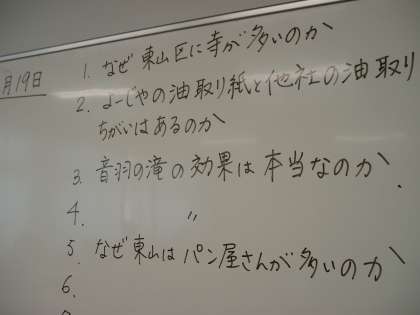 月19日
1. なぜ東山区に寺が多いのか
2. よーじやの油取り紙と他社の油取り
ちがいはあるのか
3. 音羽の滝の効果は本当なのか
4. 〃
5. なぜ東山はパン屋さんが多いのか
6.